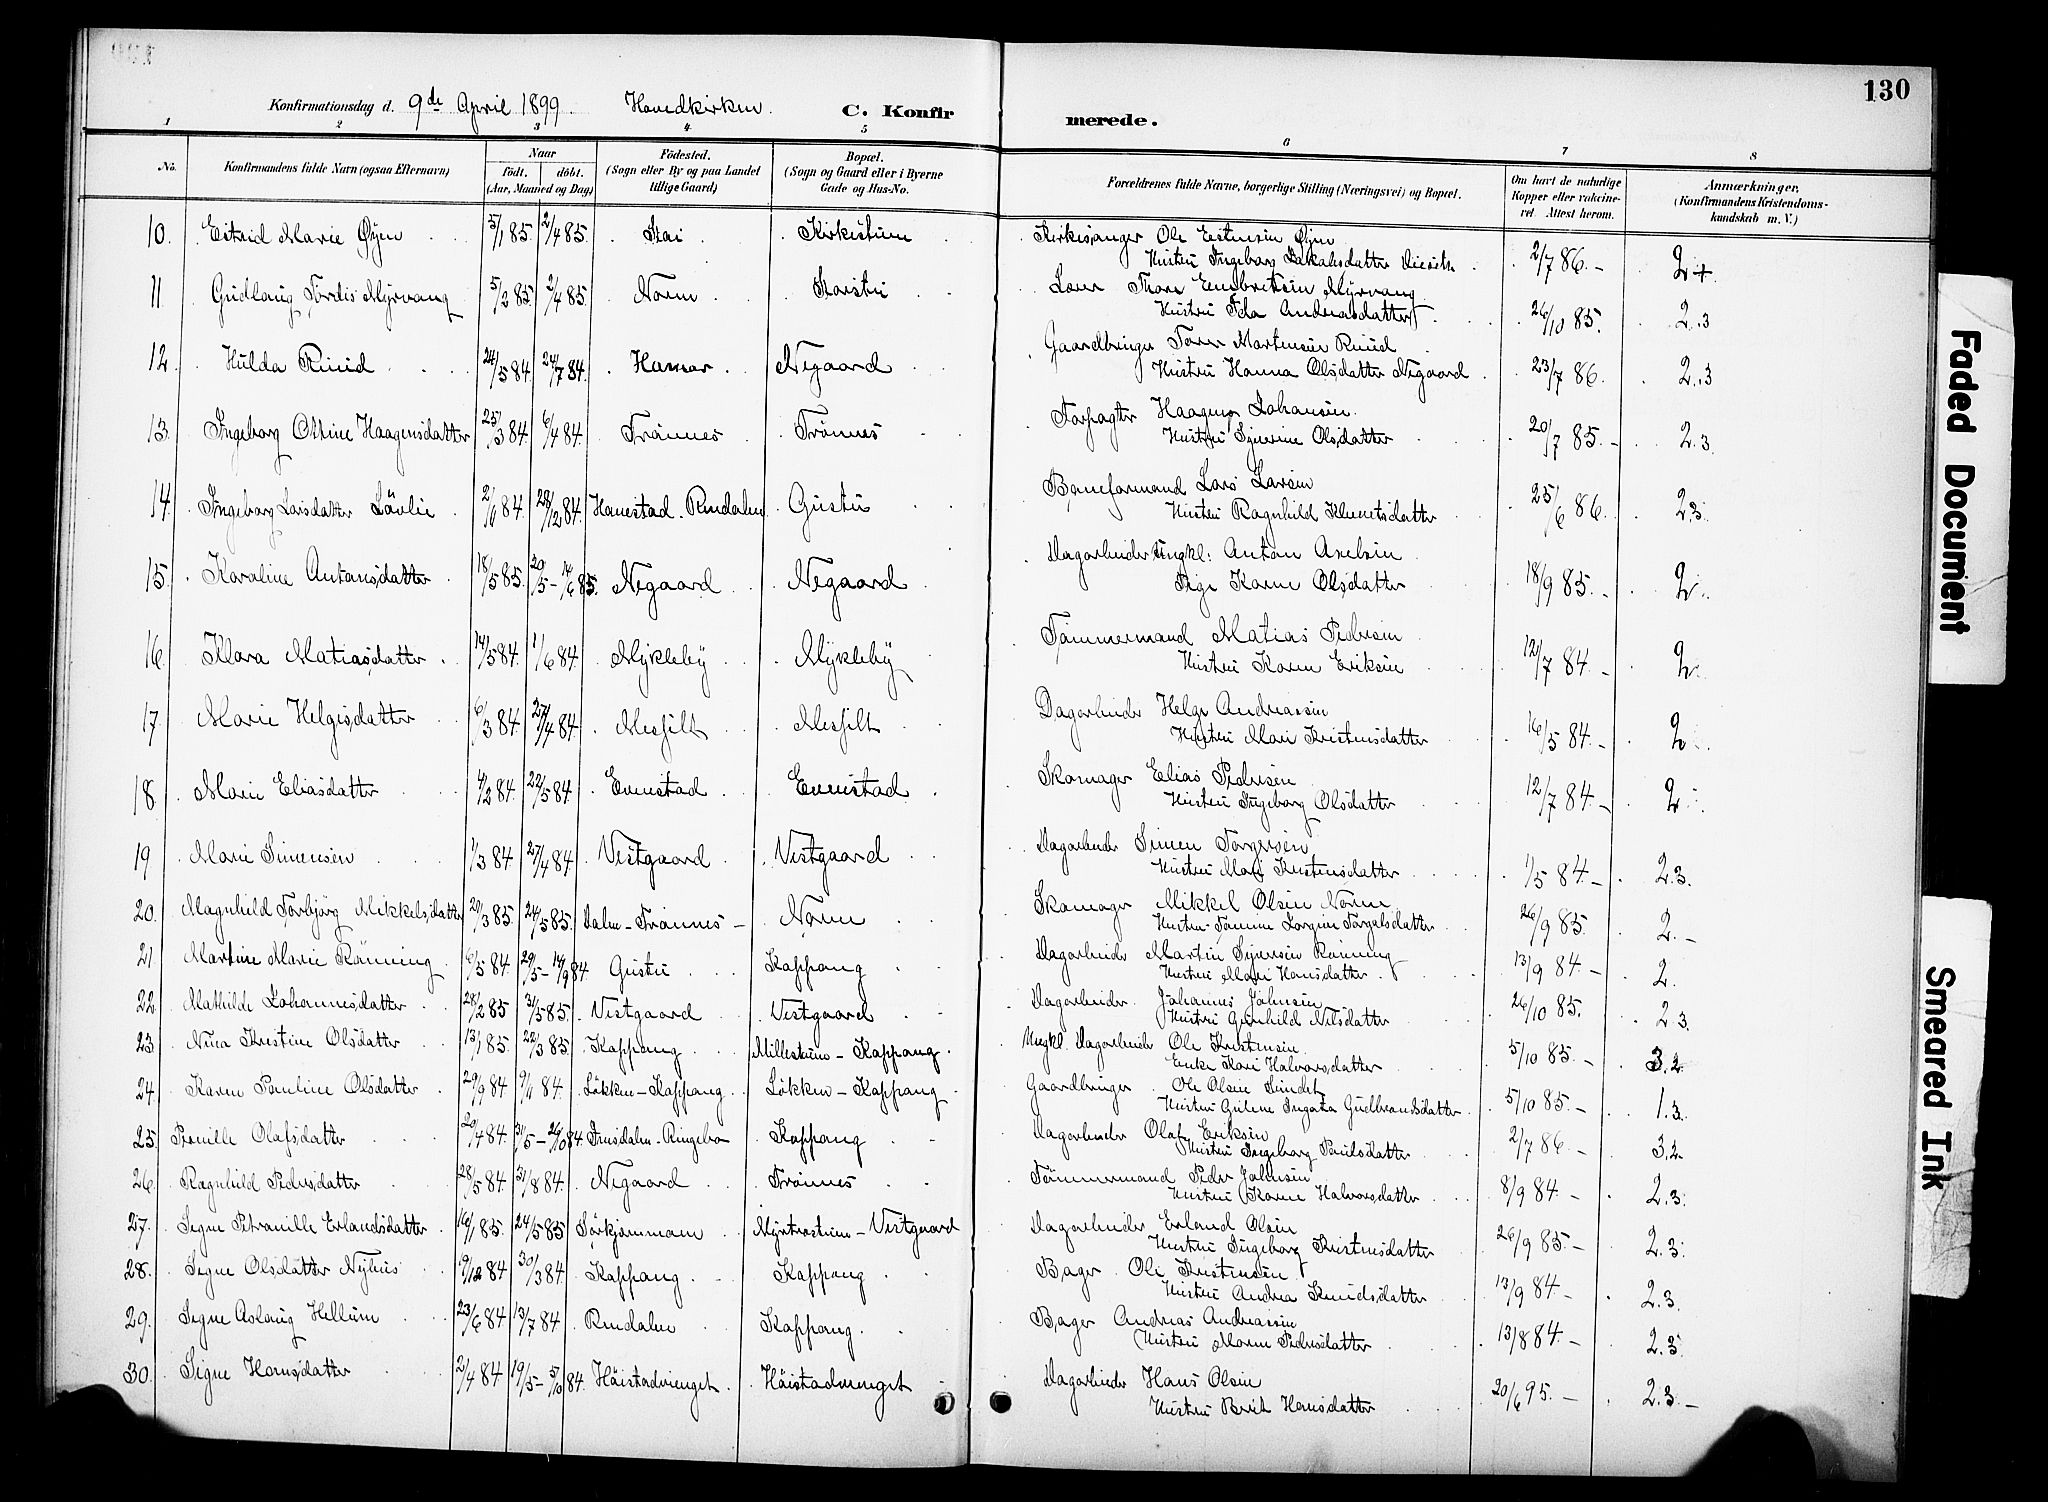 130
Konfirmationsdag d. 9de April 1899. Hovedkirken. C. Konfirmerede.
1 2 3 4 5 6 7 8
No. Konfirmandens fulde Navn (ogsaa Efternavn) Naar født. døbt. (Aar, Maaned og Dag) Fødested. (Sogn eller By og paa Landet tillige Gaard) Bopæl. (Sogn og Gaard eller i Byerne Gade og Hus-No. Forældrenes fulde Navne, borgerlige Stilling (Næringsvei) og Bopæl. Om havt de naturlige Kopper eller vakcineret. Attest herom. Anmærkninger. (Konfirmandens Kristendomskundskab m. V.)
10. Estrid Marie Øyen 5/1 85. 2/4 85. Stai Kirkestuen Kirkesanger Ole Estensen Øyen
Hustru Ingeborg Jakobsdatter 2/7 86. 2+
11. Gudlaug Tordis Myrvang 5/2 85 5/4 85. Noren Lærer Thore Embretsen Myrvang
Hustru Ida Andreasdatter 26/10 85. 2.3
12. Hulda Ruud 24/5 84. 24/7 84. Hamar Negaard Gaardbruger Martensen Ruud
Hustru Hanna Olsdatter Negaard 23/7 86. 2.3
13. Ingeborg Otine Haagensdatter 25/3 84 6/4 84. Trønnes Trønnes Forpagter Haagen Johansen
Hustru Syverine Olsdatter 20/7 85. 2.3.
14. Ingeborg Larsdatter Løvlie 2/1 84. 28/2 84. Hanestad. Rendalen Gustu Baneformand Lars Larsen
Hustru Ragnhild Klemetsdatter 25/6 86. 2.3.
15. Karoline Antonsdatter 18/5 85. 20/5 - 14/6 85. Negaard Negaard Dagarbeider Ungkl: Anton Axelsen
Pige Karen Olsdatter 18/9 85. 2.
16. Klara Matiasdatter 14/5 84. 1/6 84. Mykleby Mykleby Tømmermand Matias Pedersen
Hustru Karen Eriksen 12/7 84. 2.
17. Marie Helgesdatter 6/3 84. 27/4 84. Messelt Messelt Dagarbeider Helge Andreassen
Hustru Mari Kristensdatter 16/5 84. 2
18. Marie Eliasdatter 4/2 84. 22/5 84. Evenstad Evenstad Skomager Elias Pedersen
Hustru Ingeborg Olsdatter 12/7 84. 2
19 Marie Simensen 1/3 84 27/4 84. Vestgaard Vestgaard Dagarbeider Simen Torgersen
Hustru Mari Kristensdatter 1/5 84. 2.3.
20. Magnhild Torbjørg Mikkelsdatter 20/3 85. 24/5 85. Dalen - Trønnes Noren Skomager Mikkel Olsen Noren
Hustru Jørgine Torgalsdatter 26/9 85. 2.
21. Martine Marie Rønning 6/5 84. 29/5 - 14/9 84. Gustu Koppang Dagarbeider Martin Syversen Rønning
Hustru Mari Hansdatter 13/9 84. 2.
22. Mathilde Johannesdatter 28/2 85 31/5 85. Vestgaard Vestgaard Dagarbeider Johannes Johnsen
Hustru Gunhild Nilsdatter 26/10 85. 2.3.
23. Nina Kristine Olsdatter 13/1 85. 22/3 85. Koppang Millestuen - Koppang Ungkl. Dagarbeider Ole Kristensen
Enke Kari Halvorsdatter 5/10 85. 3.2
24. Karen Pauline Olsdatter 29/9 84 9/11 84. Løkken - Koppang Løkken - Koppang Gaardbruger Ole Olsen Sundet
Hustru Guline Ingata Gudbrandsdatter 5/10 85. 1.3.
25. Pernille Olafsdatter 20/4 84. 31/5 - 26/10 84. Ringebo Koppang Dagarbeider Olaf Eriksen
Hustru Ingeborg Paulsdatter 2/7 86. 3.2
26. Ragnhild Pedersdatter 28/5 84. 31/8 84. Negaard Trønnes Tømmermand Peder Johnsen
Hustru Karen Halvorsdatter 8/9 84. 2.3.
27. Signe Petronille Erlandsdatter 16/1 85. 24/5 85 Størkjønmoen Myrterstuen - Vestgaard Dagarbeider Erland Olsen
Hustru Ingeborg Kristensdatter 26/9 85. 2.3.
28. Signe Olsdatter Nyhus 84 30/3 84. Koppang Koppang Bager Ole Kristensen
Hustru Andrea Knudsdatter 13/9 84. 2.3.
29. Signe Aslaug Hellum 23/6 84 13/7 84 Rendalen Koppang Bager Andreas Andreassen
Hustru Maren Pedersdatter 13/8 84. 2.3.
30. Signe Hansdatter 2/4 84 19/5 - 5/10 84. Høistadvænget Høistadvænget Dagarbeider Hans Olsen
Hustru Berit Hansdatter 20/6 95. 2.3.
Faded Document
Smeared Ink